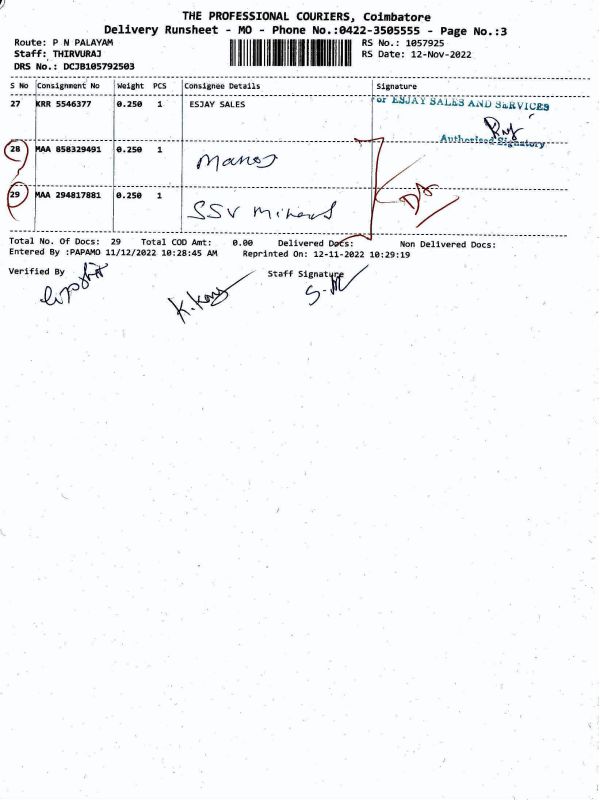 THE PROFESSIONAL COURIERS, Coimbatore
Delivery Runsheet - MO - Phone No.:0422-3505555 - Page No.:3
Route: P N PALAYAM
Staff: THIRVURAJ
DRS No.: DCJB105792503
RS No.: 1057925
RS Date: 12-Nov-2022
S No Consignment No Weight PCS Consignee Details Signature
27 KRR 5546377 0.250 1 ESJAY SALES
For ESJAY SALES AND SERVICES
Authorised Signatory
28 MAA 858329491 0.250 1 Manoj
29 MAA 294817881 0.250 1 SSV Minerals
Total No. Of Docs: 29 Total COD Amt: 0.00 Delivered Docs: Non Delivered Docs:
Entered By :PAPAMO 11/12/2022 10:28:45 AM Reprinted On: 12-11-2022 10:29:19
Verified By Staff Signature